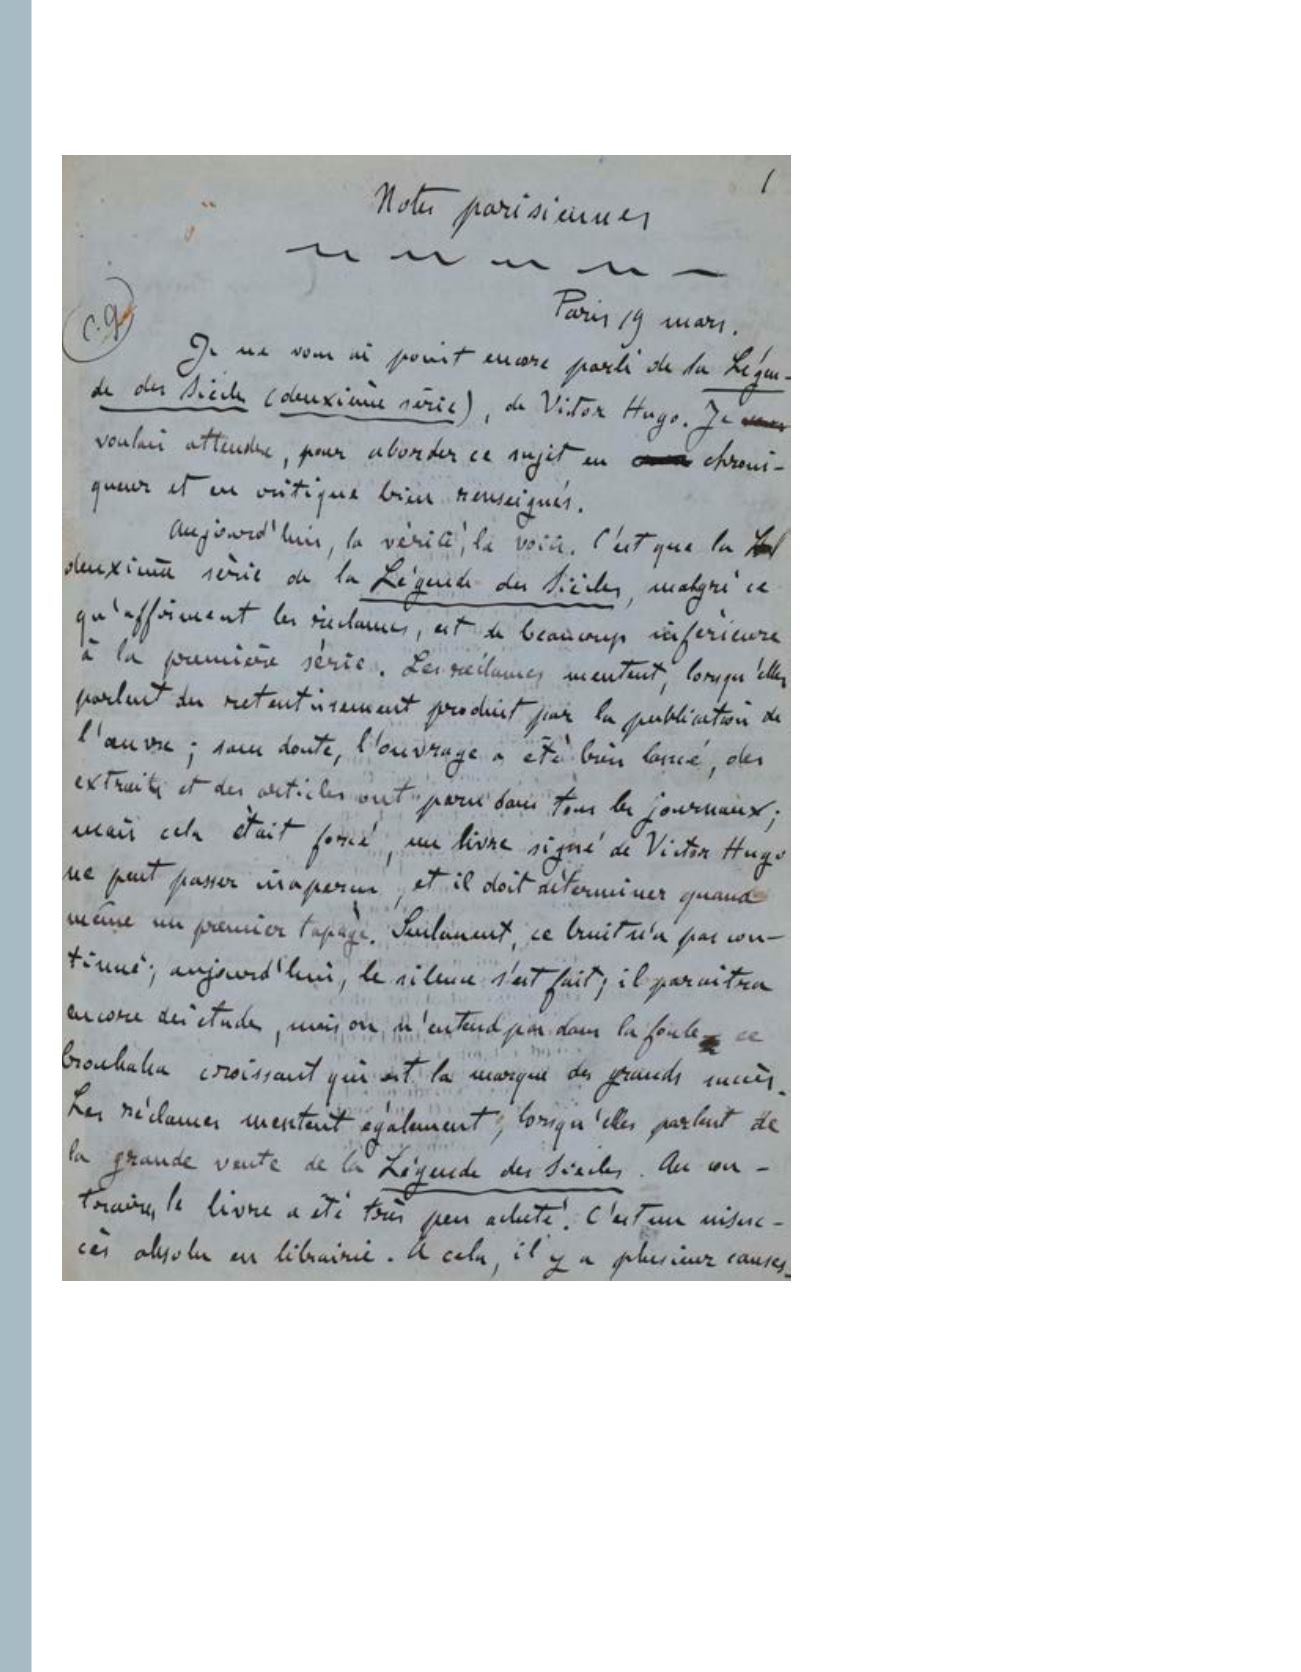 1
Notes parisiennes
Paris 19 mars.
c.9
Je ne vous ai point encore parlé de la Légen-
de des Siècle (deuxième série), de Victor Hugo. Je
voulais attendre, pour aborder ce sujet en chroni-
queur et en critique bien renseignés.
Aujourd'hui, la vérité, la voici. C'est que la
deuxième série de la Légende des Siècles, malgré ce
qu'affirment les réclames, est de beaucoup inférieure
à la première série. Les réclames mentent, lorsqu'elles
parlent du retentissement produit par la publication de
l'œuvre ; sans doute, l'ouvrage a été bien lancé, des
extraits et des articles ont paru dans tous les journaux ;
mais cela était forcé, un livre signé de Victor Hugo
ne peut passer inaperçu, et il doit déterminer quand
même un premier tapage. Seulement, ce bruit n'a pas con-
tinué ; aujourd'hui, le silence s'est fait ; il paraîtra
encore des études, mais on n'entend pas dans la foule ce
brouhaha croissant qui est la marque des grands succès.
Les réclames mentent également, lorsqu'elles parlent de
la grande vente de la Légende des Siècles. Au con-
traire, le livre a été très peu acheté. C'est un insuc-
cès absolu en librairie. A cela, il y a plusieur causes.